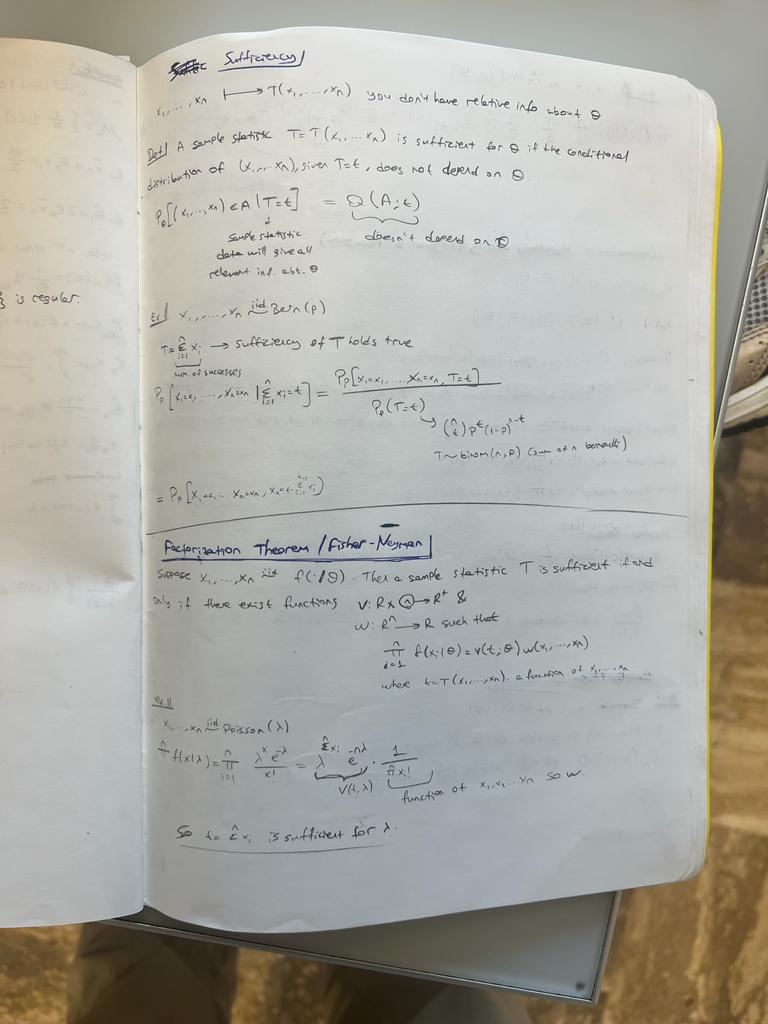 Sufficiency
x₁, ..., xₙ ⟼ T(x₁, ..., xₙ) you don't have relative info about θ
Def| A sample statistic T = T(x₁, ..., xₙ) is sufficient for θ if the conditional
distribution of (x₁, ... xₙ), given T=t, does not depend on θ.
P_θ[(x₁, ..., xₙ) ∈ A | T=t] = Q(A; t)
↓
sample statistic
data will give all
relevant inf. abt. θ
doesn't depend on θ
Ex| x₁, ..., xₙ iid~ Bern(p)
T = Σ_{i=1}^n xᵢ → sufficiency of T holds true
num. of successes
P_p[x₁=x₁, ..., xₙ=xₙ | Σ_{i=1}^n xᵢ=t] = P_p[x₁=x₁, ... xₙ=xₙ, T=t] / P_p(T=t)
→ (n t) p^t (1-p)^{n-t}
T ~ binom(n, p) (sum of n bernoulli)
= P_p[x₁=x₁, ... xₙ=xₙ, xₙ=t-Σ_{i=1}^{n-1} xᵢ)
Factorization Theorem / Fisher-Neyman
Suppose x₁, ..., xₙ iid~ f(·|θ). Then a sample statistic T is sufficient if and
only if there exist functions v: R x Θ → R⁺ &
w: Rⁿ → R such that
Π_{i=1}^n f(xᵢ|θ) = v(t; θ) w(x₁, ..., xₙ)
where t = T(x₁, ..., xₙ). a function of x₁, ..., xₙ
Ex||
x₁, ..., xₙ iid~ Poisson(λ)
Π^n f(x|λ) = Π_{i=1}^n λ^x e^{-λ} / x! = λ^{Σ^n xᵢ} e^{-nλ} · 1 / Π^n xᵢ!
V(t, λ)
function of x₁, x₂ ... xₙ so w
So t = Σ^n xᵢ is sufficient for λ.
is regular.